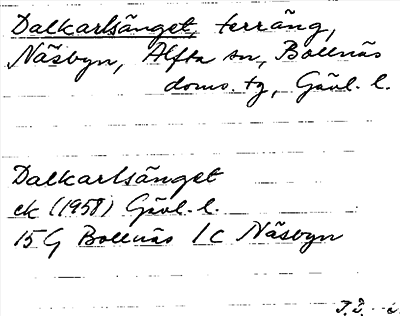 Dalkarlsänget, terräng,
Näsbyn, Alfta sn, Bollnäs
doms. tg, Gävl. l.
Dalkarlsänget
ek (1958) Gävl. l.
15 G Bollnäs 1 c Näsbyn